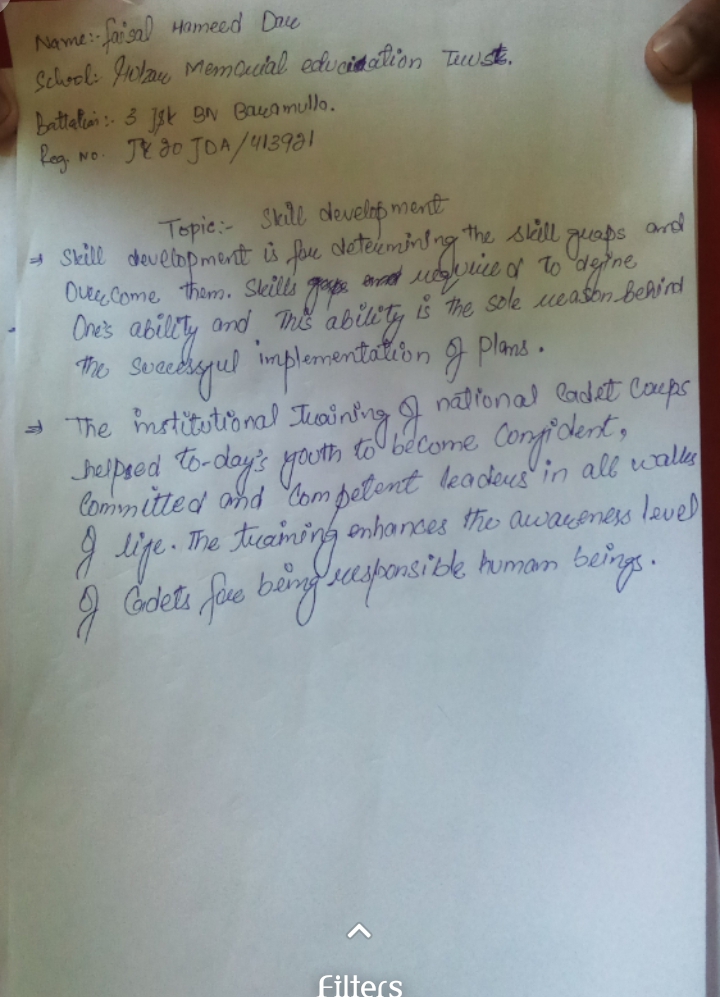 Name:- Faisal Hameed Dar
School: Memorial education Trust.
Battalion:- 3 J&K BN Baramulla.
Reg. No. JK 20 JDA/413921
Topic:- Skill development
⇒ Skill development is for determining the skill guaps and
Overcome them. Skills gaps and required to define
One's ability and This ability is the sole reason behind
the successful implementation of Plans.
⇒ The institutional Training of national Cadet Corps
helped to-day's youth to become Confident,
Committed and Competent leaders in all walks
of life. The training enhances the awareness level
of Cadets for being responsible human beings.
Filters